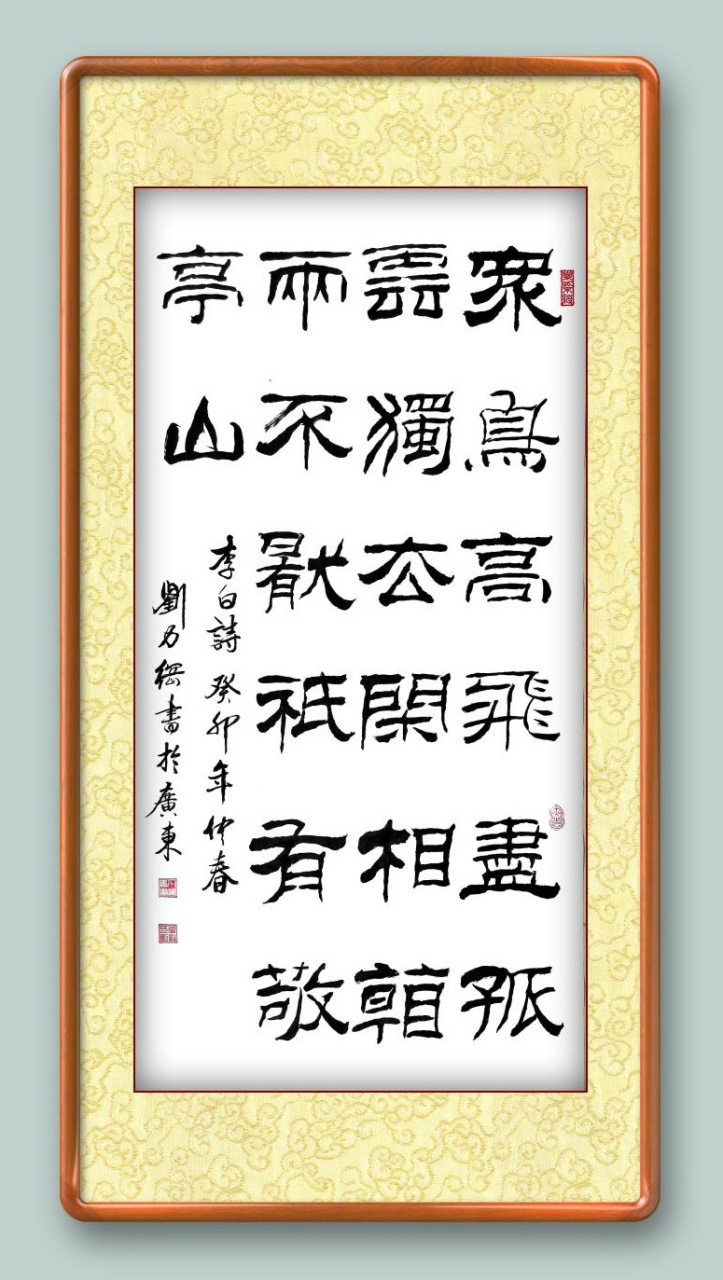 眾鳥高飛盡孤
雲獨去閑相看
兩不猒祗有敬
亭山
李白詩癸卯年仲春
劉力綱書於廣東